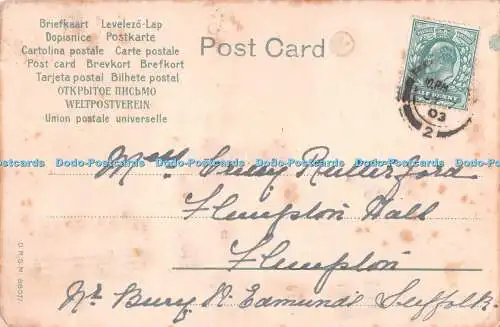 Briefkaart Levelező-Lap
Dopisnice Postkarte
Cartolina postale Carte postale
Post card Brevkort Brefkort
Tarjeta postal Bilhete postal
ОТКРЫТОЕ ПИСЬМО
WELTPOSTVEREIN
Union postale universelle
Post Card
POSTAGE REVENUE
10 PM
03
2
Dodo-Postcards Dodo-Postcards Dodo-Postcards Dodo-Postcards Dodo-Postcards
Rutterford
Flempton Hall
Flempton
Nr Bury St Edmunds Suffolk.